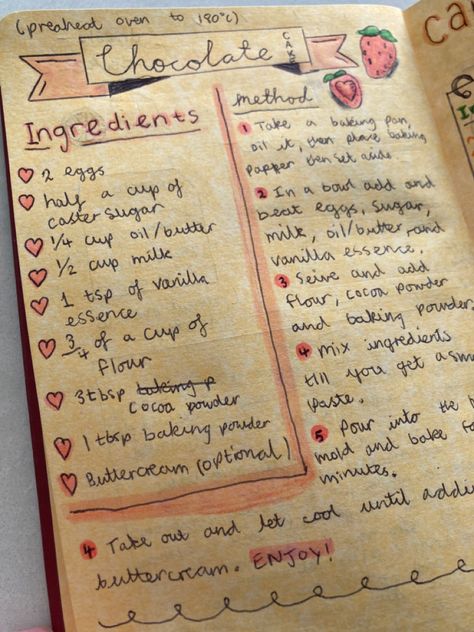 (preaheat oven to 190°c)
Chocolate CAKE
Ingredients
2 eggs
half a cup of
caster sugar
1/4 cup oil/butter
1/2 cup milk
1 tsp of vanilla
essence
3/4 of a cup of
flour
3tbsp baking p
cocoa powder
1 tbsp baking powder
Buttercream (optional)
method
1 Take a baking pan,
oil it, then place baking
papper then set aside
2 In a bowl add and
beat eggs, sugar,
milk, oil/butter and
vanilla essence.
3 Seive and add
flour, cocoa powder
and baking powder
4 mix ingredients
till you get a
paste.
5 Pour into the
mold and bake
minutes.
4 Take out and let cool until
buttercream. ENJOY!
Ca